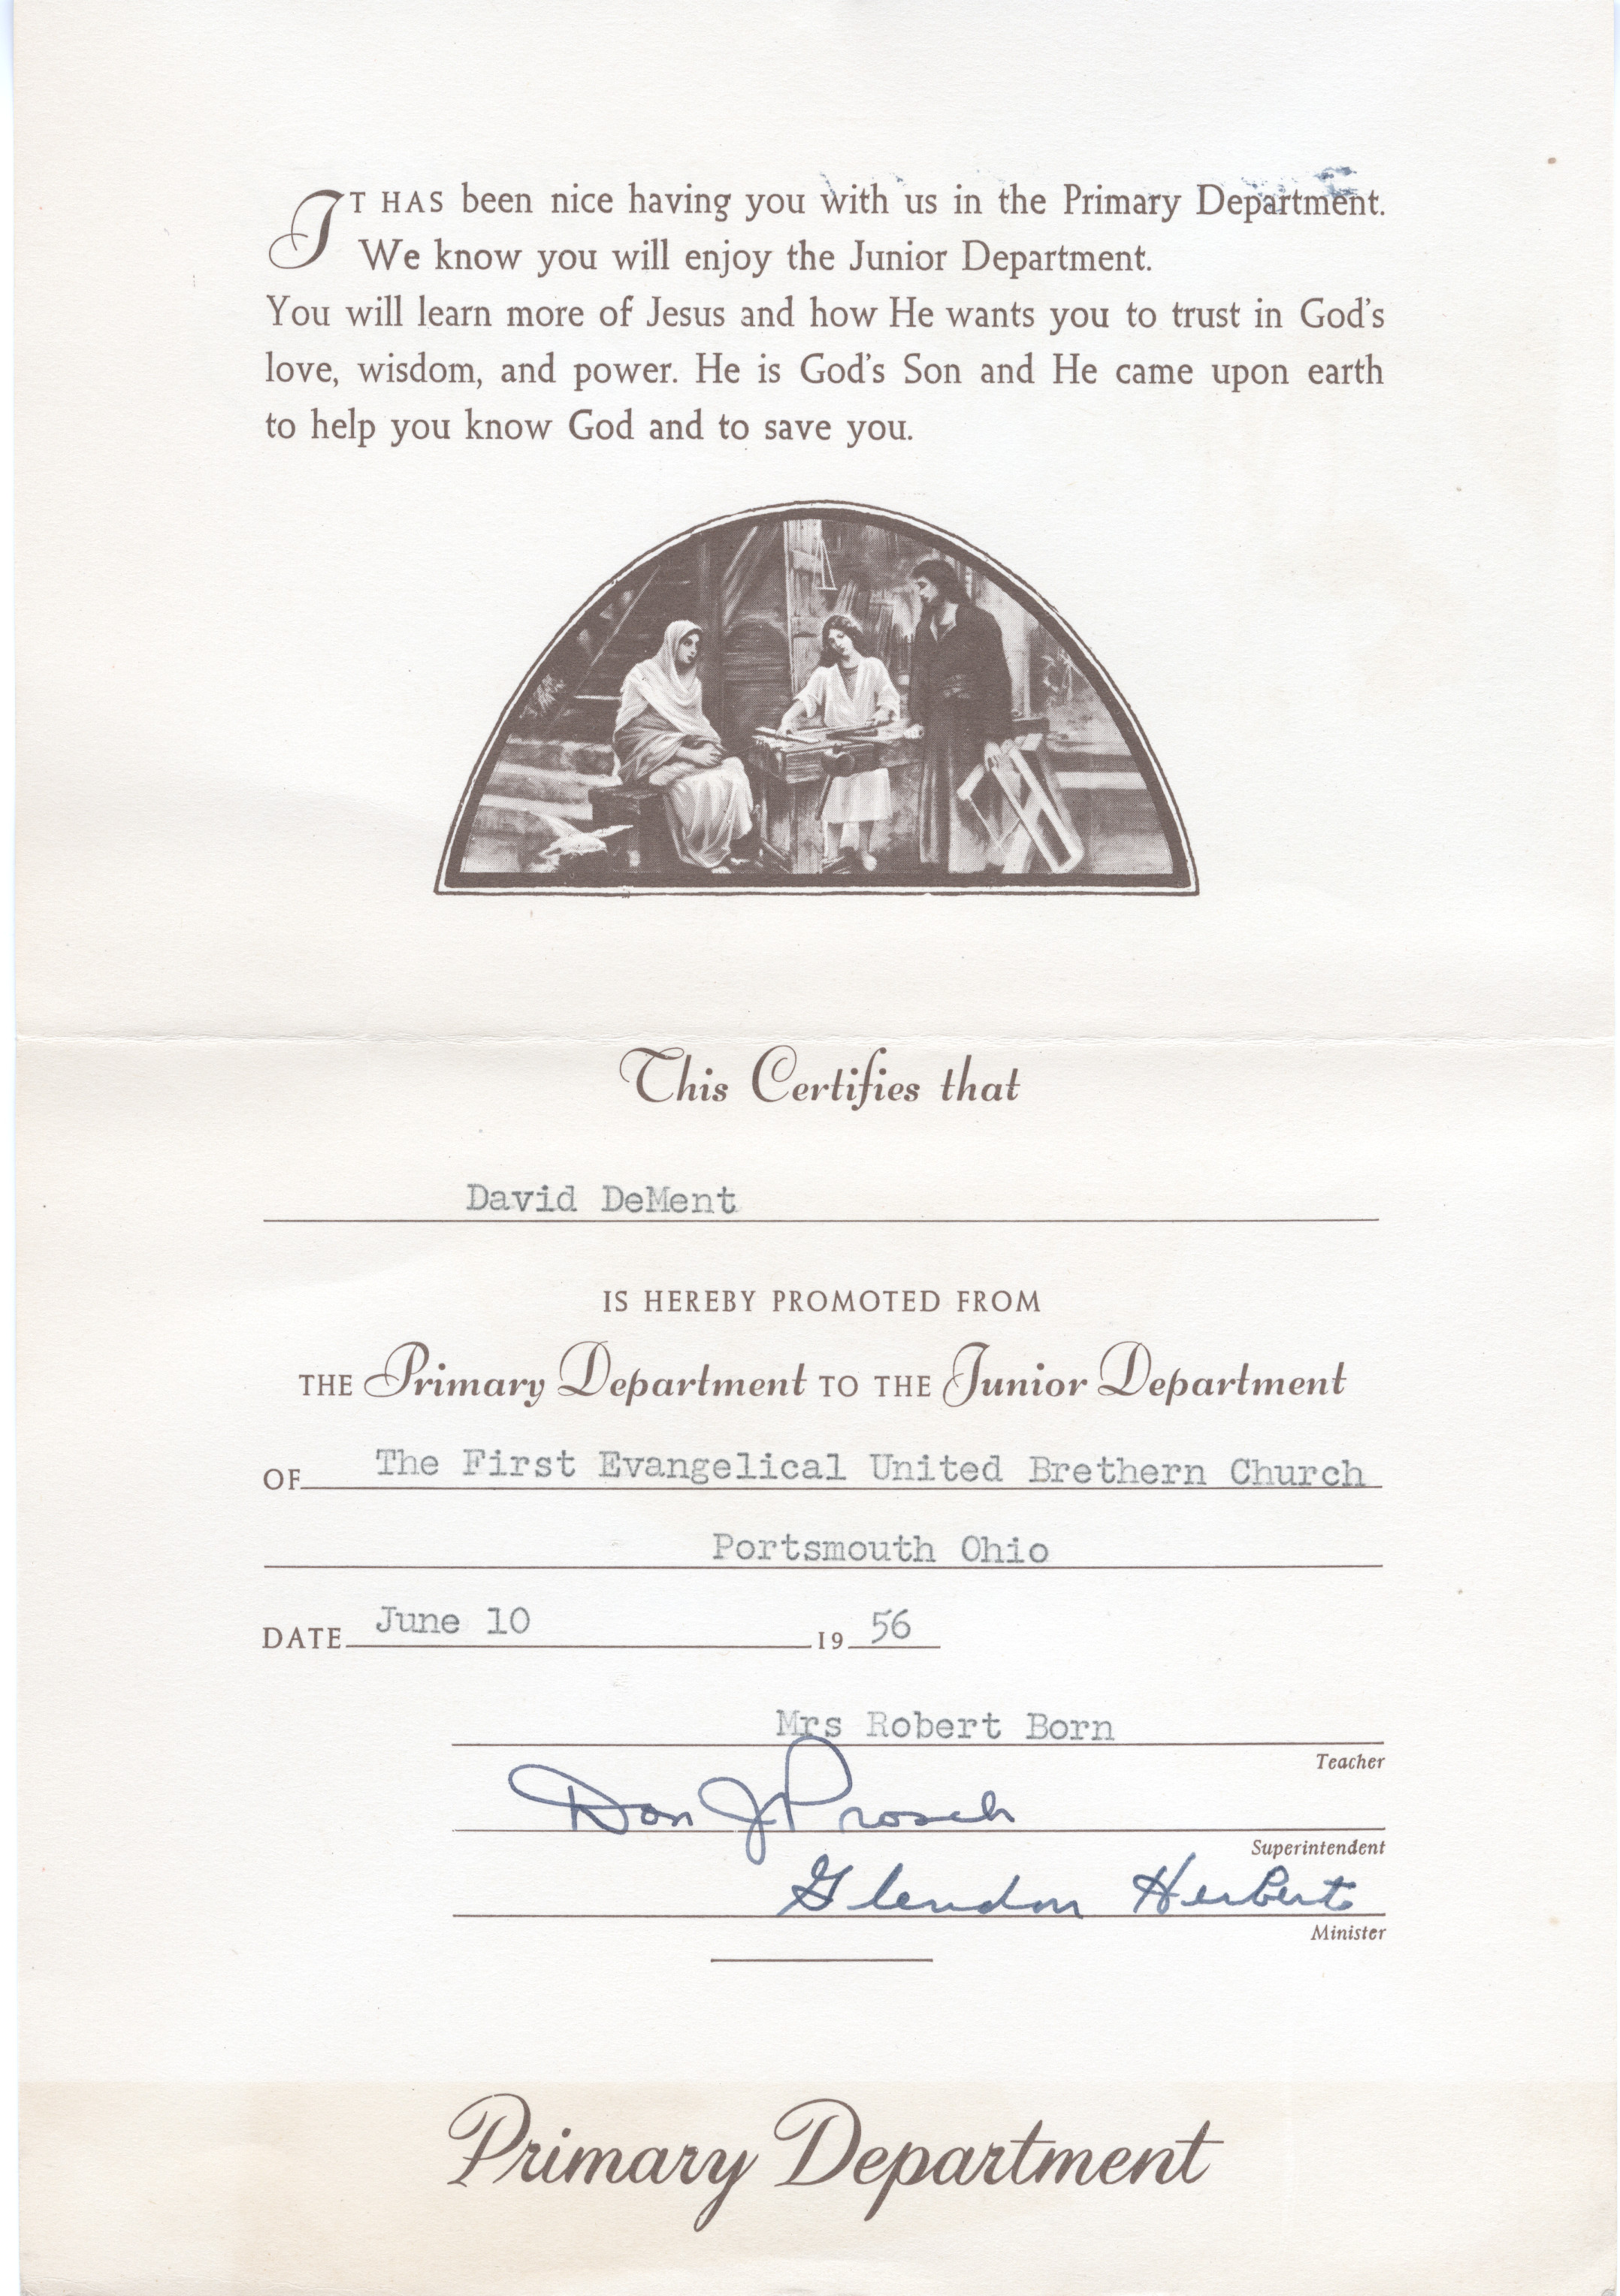 IT HAS been nice having you with us in the Primary Department.
We know you will enjoy the Junior Department.
You will learn more of Jesus and how He wants you to trust in God's
love, wisdom, and power. He is God's Son and He came upon earth
to help you know God and to save you.
This Certifies that
David DeMent
IS HEREBY PROMOTED FROM
THE Primary Department TO THE Junior Department
OF The First Evangelical United Brethern Church
Portsmouth Ohio
DATE June 10 19 56
Mrs Robert Born
Teacher
Don J Prosch
Superintendent
Glendon Herbert
Minister
Primary Department